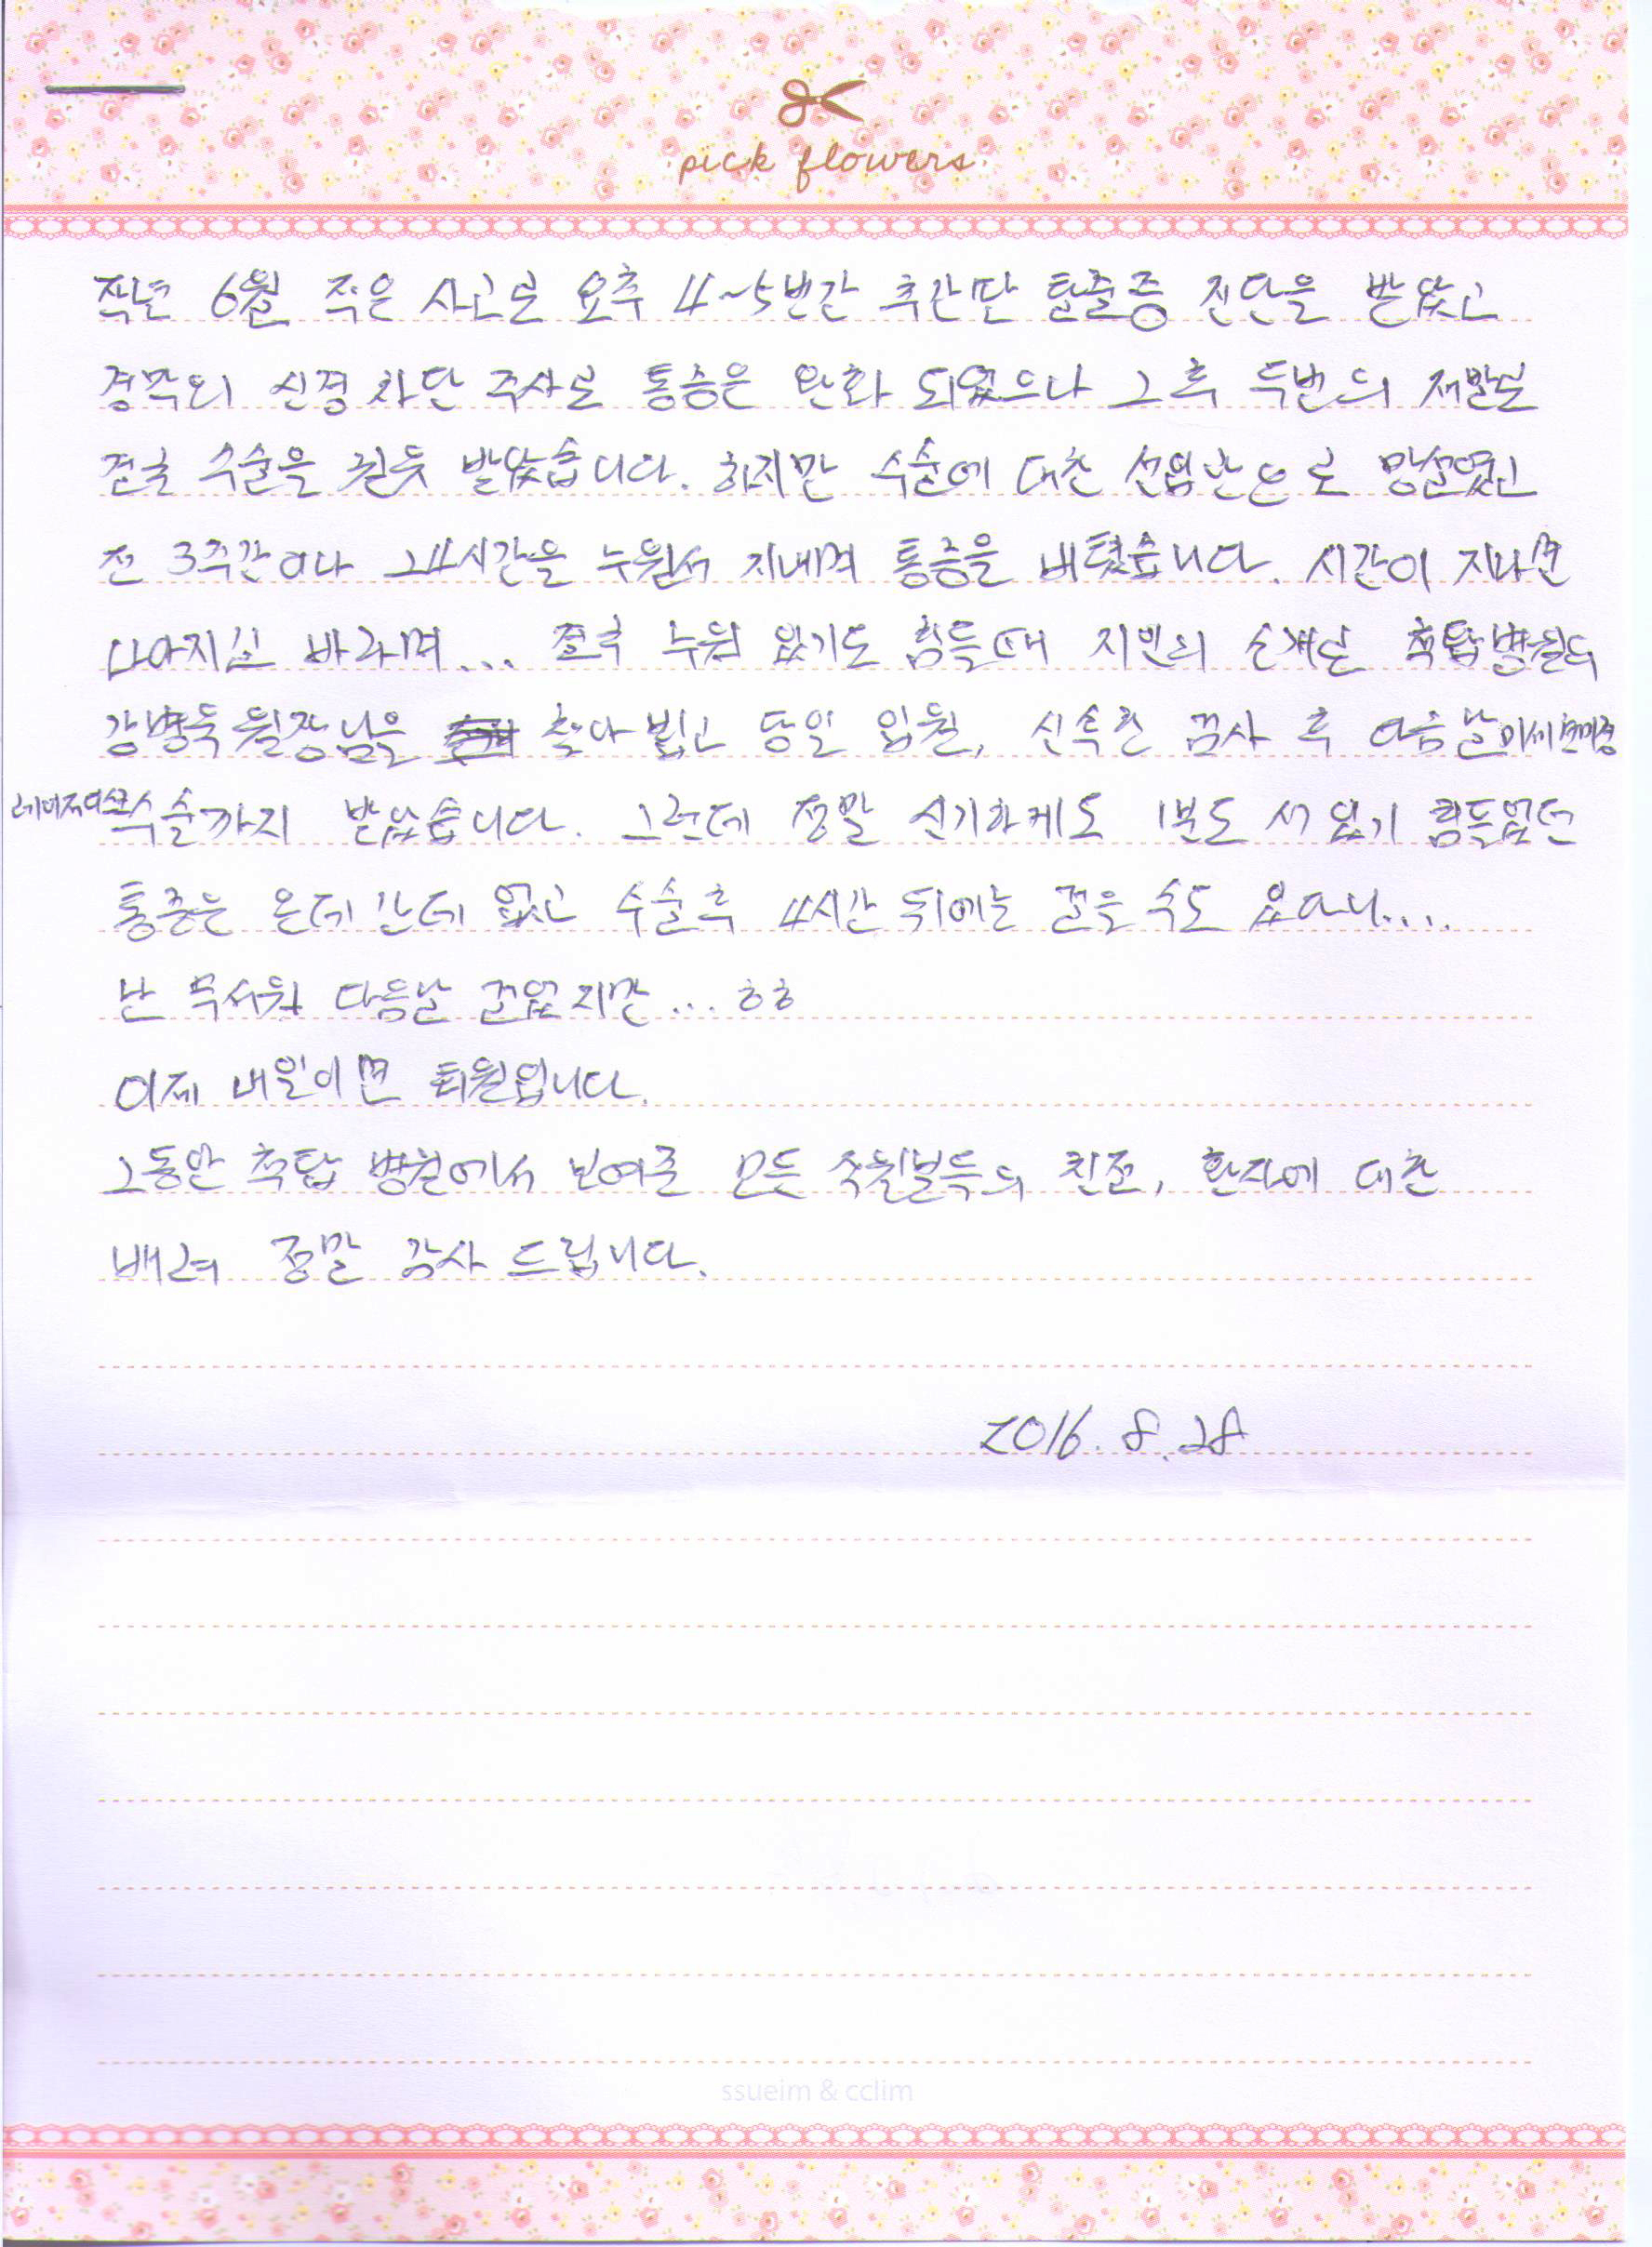 pick flowers
작년 6월 적은 사고로 요추 4~5번간 추간판 탈출증 진단을 받았고
경막외 신경 차단 주사로 통증은 완화 되었으나 그 후 두번의 재발로
결국 수술을 권유 받았습니다. 하지만 수술에 대한 선입관으로 망설였고
전 3주간이나 24시간을 누워서 지내며 통증을 버텼습니다. 시간이 지나면
나아지길 바라며... 결국 누워 있기도 힘들때 지인의 소개로 척탑병원의
강병욱 원장님을 찾아 뵙고 당일 입원, 신속한 검사 후 다음날 미세현미경
레이저디스크 수술까지 받았습니다. 그런데 정말 신기하게도 1분도 서 있기 힘들었던
통증은 온데 간데 없고 수술후 4시간 뒤에는 걸을 수도 있다니....
난 무서워 다음날 걸었지만... ㅎㅎ
이제 내일이면 퇴원입니다.
그동안 척탑 병원에서 보여준 모든 직원분들의 친절, 환자에 대한
배려 정말 감사 드립니다.
2016. 8. 28
ssueim & cclim